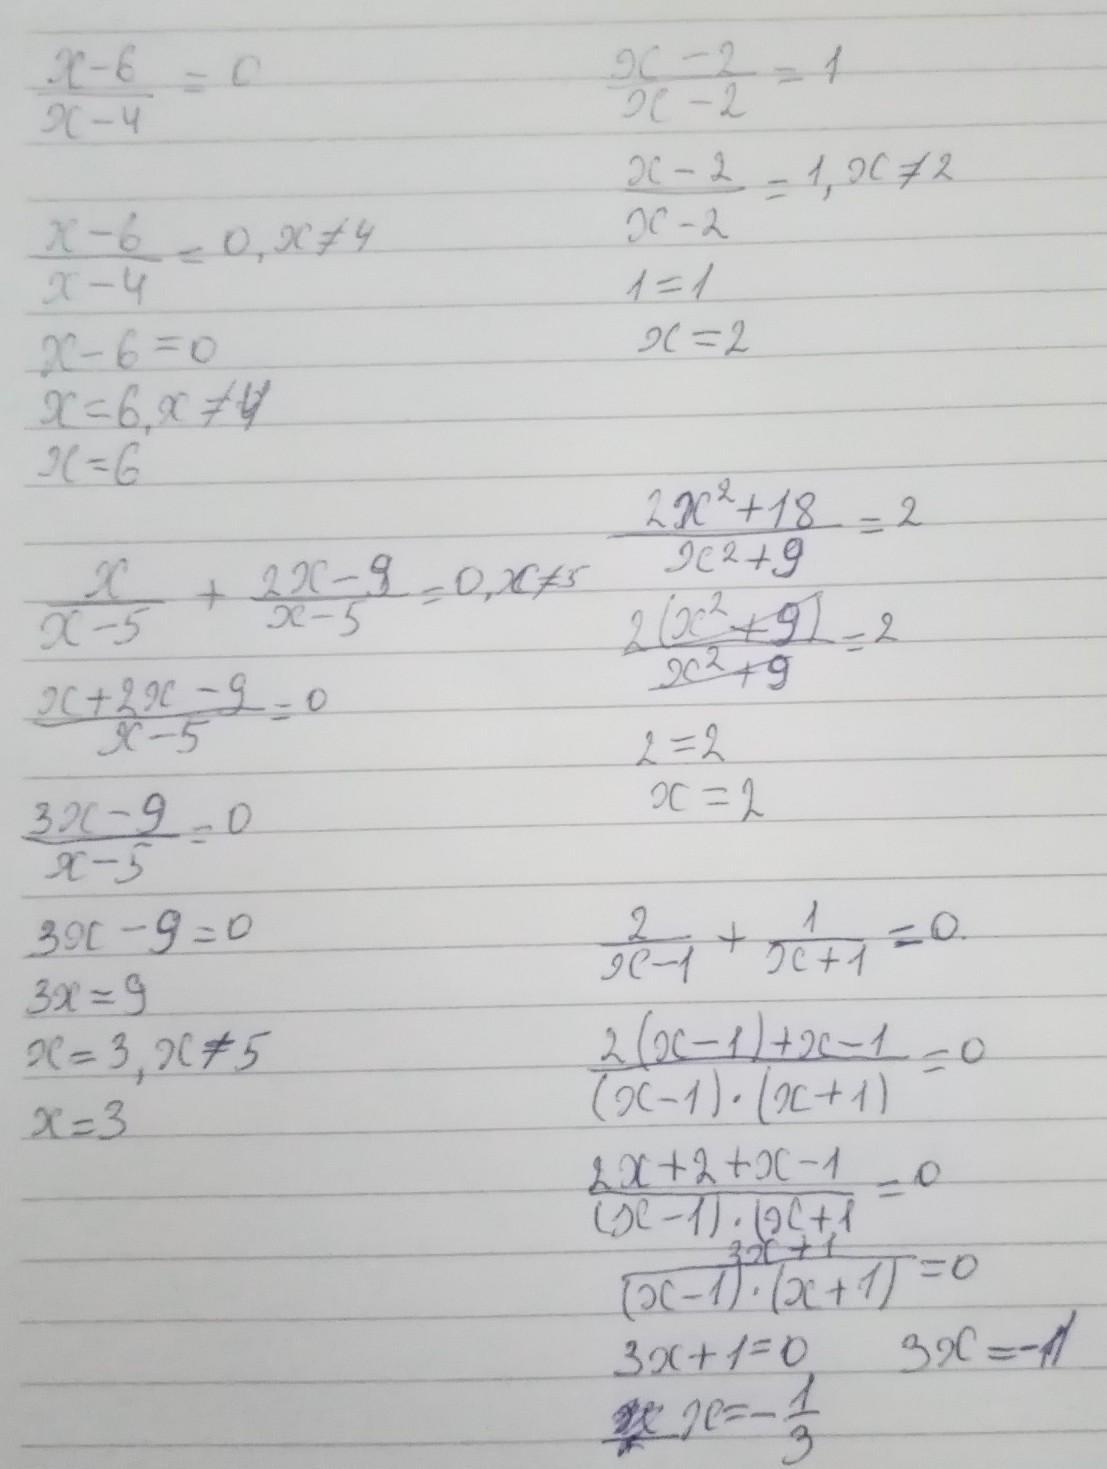 x-6/x-4 = 0
x-6/x-4 = 0, x≠4
x-6=0
x=6, x≠4
x=6
x/x-5 + 2x-9/x-5 = 0, x≠5
x+2x-9/x-5 = 0
3x-9/x-5 = 0
3x-9=0
3x=9
x=3, x≠5
x=3
x-2/x-2 = 1
x-2/x-2 = 1, x≠2
1=1
x=2
2x²+18/x²+9 = 2
2(x²+9)/x²+9 = 2
2=2
x=2
2/x-1 + 1/x+1 = 0.
2(x-1)+x-1/(x-1)·(x+1) = 0
2x+2+x-1/(x-1)·(x+1 = 0
3x+1/(x-1)·(x+1) = 0
3x+1=0 3x=-1
x=-1/3